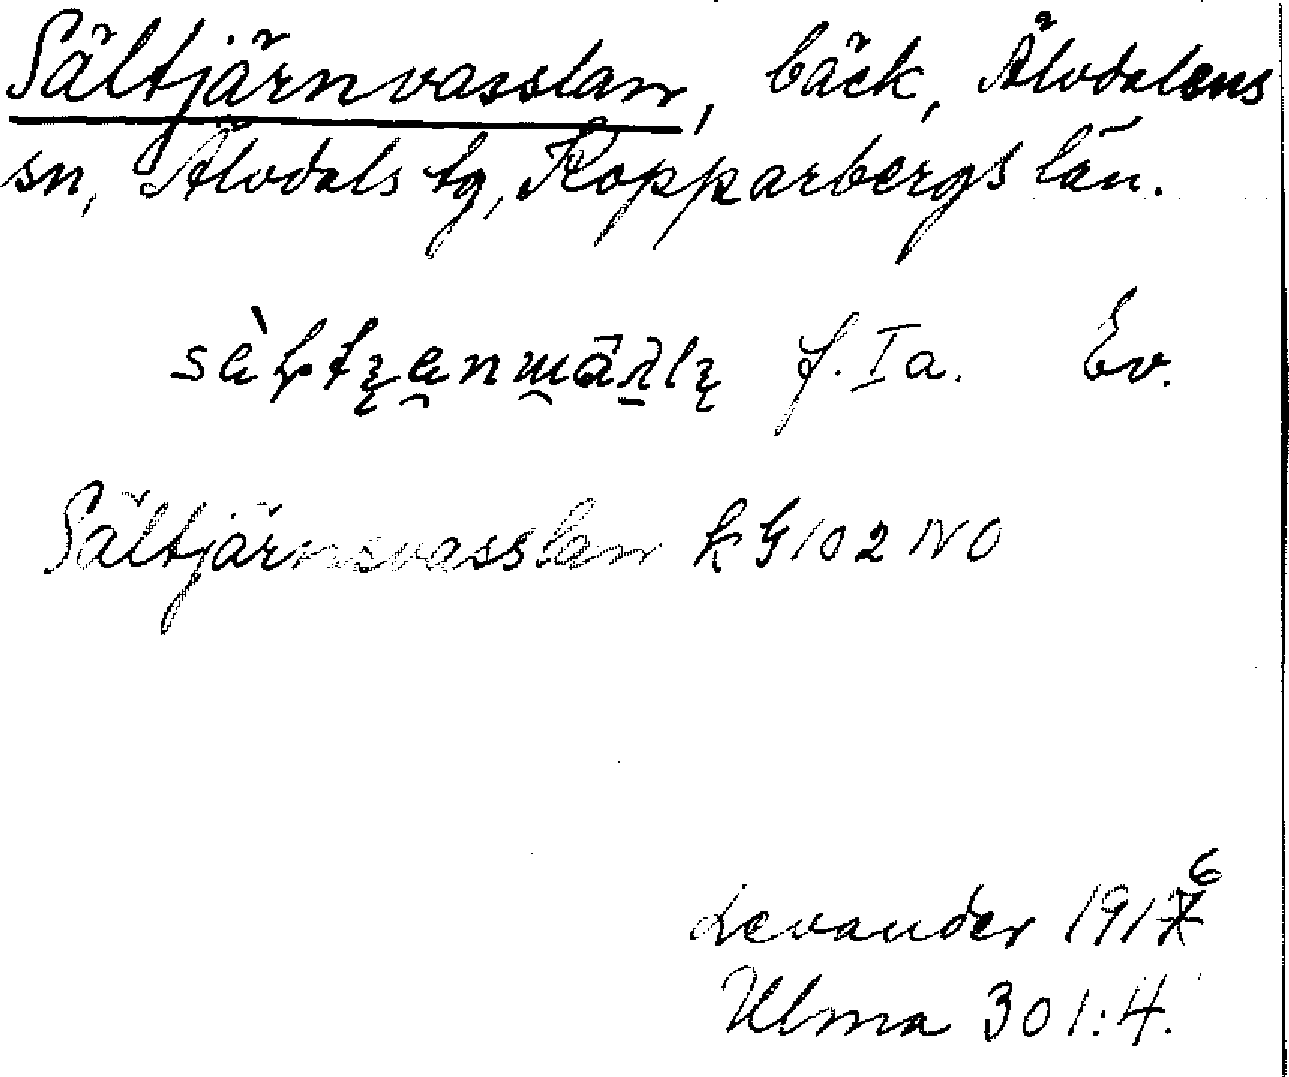 Sältjärnvasslan, bäck, Älvdalens
sn, Älvdals tg, Kopparbergs län.
f. Ia. Ev.
Sältjärnsvasslan kG 102 NO
Levander 1916
Ulma 301:4.